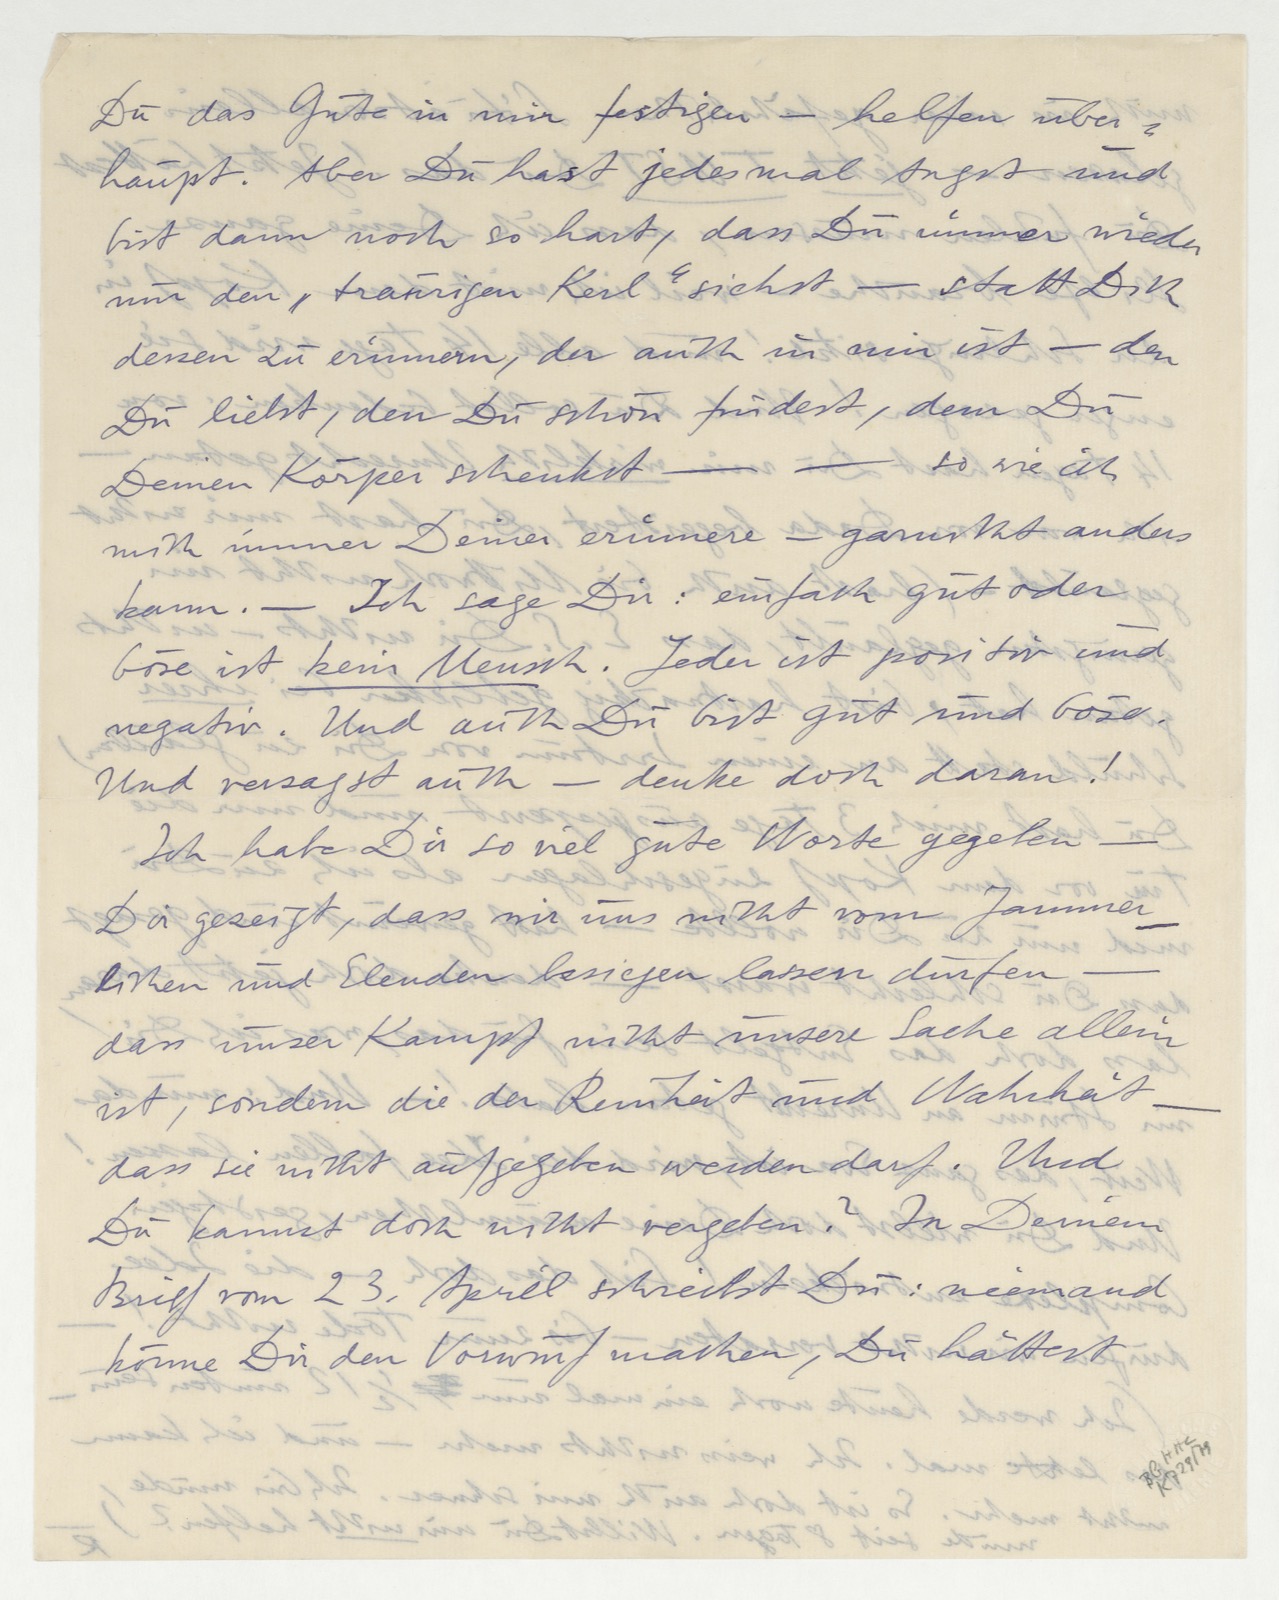 Du das Gute in mir festigen — helfen über=
haupt. Aber Du hast jedesmal Angst und
bist dann noch so hart, dass Du immer wieder
nur den „traurigen Kerl“ siehst — statt Dich
dessen zu erinnern, der auch in mir ist — den
Du liebst, den Du schön findest, dem Du
Deinen Körper schenkst — — so wie ich
mich immer Deiner erinnere — garnicht anders
kann. — Ich sage Dir: einfach gut oder
böse ist kein Mensch. Jeder ist positiv und
negativ. Und auch Du bist gut und böse.
Und versagst auch — denke doch daran!
Ich habe Dir so viel gute Worte gegeben —
Dir gezeigt, dass wir uns nicht vom Jammer-
lichen und Elenden besiegen lassen dürfen —
dass unser Kampf nicht unsere Sache allein
ist, sondern die der Reinheit und Wahrheit —
dass sie nicht aufgegeben werden darf. Und
Du kannst doch nicht vergeben? In Deinem
Brief vom 23. April schreibst Du: niemand
könne Dir den Vorwurf machen, Du hättest
BG HHC
K 29/79